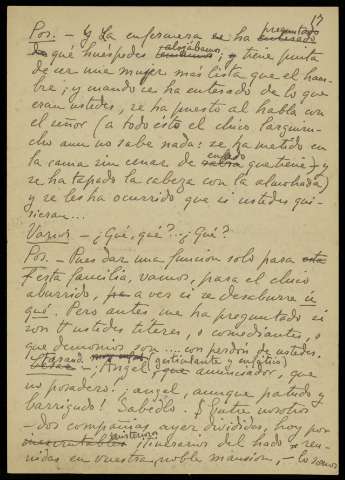 17
Pos. - Y la enfermera se ha preguntado
qué huéspedes alojábamos; y tiene pinta
de ser una mujer más lista que el ham-
bre; y cuando se ha enterado de lo que
eran ustedes, se ha puesto al habla con
el señor (a todo esto el chico larguiru-
cho aun no sabe nada: se ha metido en
la cama sin cenar de enfado que tiene y
se ha tapado la cabeza con la almohada)
y se les ha ocurrido que si ustedes qui-
sieran...
Varios - ¿Qué, qué?...¿Qué?
Pos. - Pues dar una función solo para
esta familia, vamos, para el chico
aburrido, a ver si se desaburre
qué. Pero antes me ha preguntado si
son ustedes títeres, o comediantes, o
que demonios son... con perdón de ustedes.
(gesticulante y enfático)
- ¡Angel anunciador, que
no posadero! ¡angel, aunque patudo y
barrigudo! Sabedlo. Entre nosotros
- dos compañías ayer divididas, hoy por
misteriosos itinerarios del hado reu-
nidas en vuestra noble mansión, - los somos